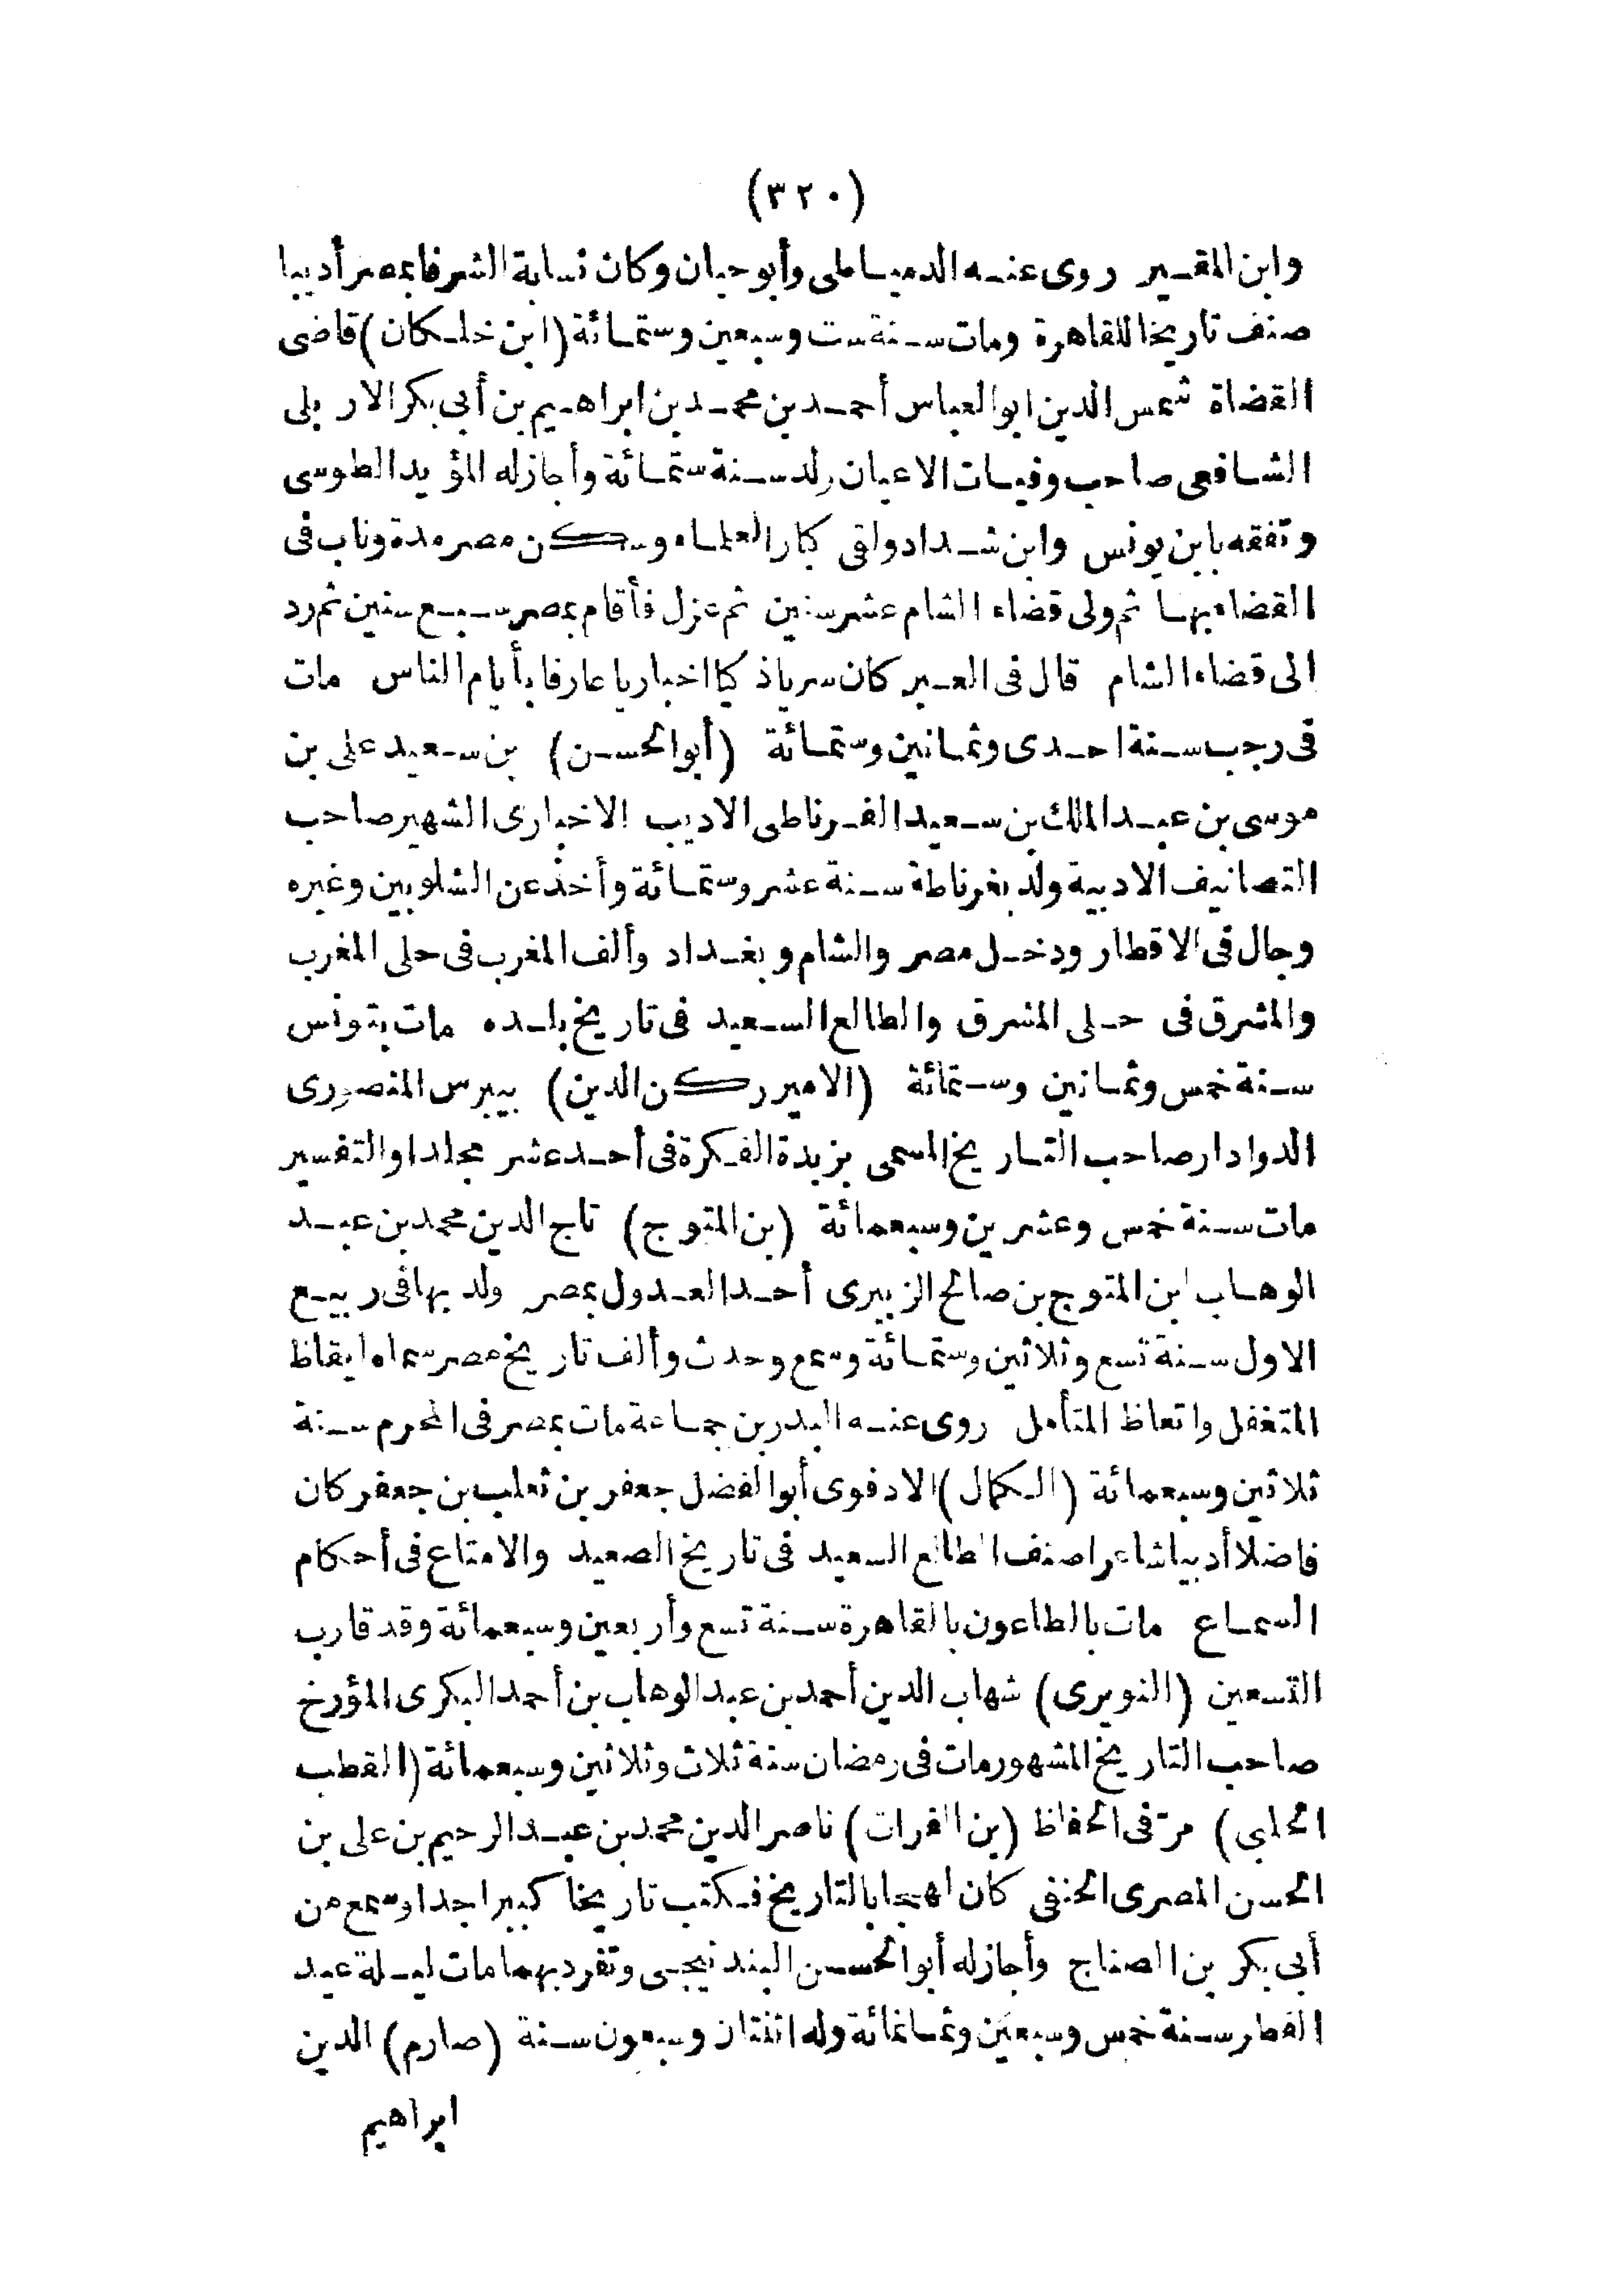 (٣٢٠)
وابن المقير روى عنه الدمياطى وأبو حيان وكان نسابة الشرفا بمصر أديبا
صنف تاريخا للقاهرة ومات سنة ست وسبعين وستمائة (ابن خلكان) قاضى
القضاة شمس الدين ابو العباس أحمد بن محمد بن ابراهيم بن أبى بكر الاربلى
الشافعى صاحب وفيات الاعيان ولد سنة ستمائة وأجاز له المؤيد الطوسى
وتفقه بابن يونس وابن شداد ولقى كبار العلماء وسكن مصر مدة وناب فى
القضاء بها ثم ولى قضاء الشام عشر سنين ثم عزل فأقام بمصر سبع سنين ثم رد
الى قضاء الشام قال فى العبر كان سريا ذكيا اخباريا عارفا بأيام الناس مات
فى رجب سنة احدى وثمانين وستمائة (أبو الحسن) بن سعيد على بن
موسى بن عبد الملك بن سعيد الغرناطى الاديب الاخبارى الشهير صاحب
التصانيف الادبية ولد بغرناطة سنة عشر وستمائة وأخذ عن الشلوبين وغيره
وجال فى الاقطار ودخل مصر والشام وبغداد وألف المغرب فى حلى المغرب
والمشرق فى حلى المشرق والطالع السعيد فى تاريخ بلده مات بتونس
سنة خمس وثمانين وستمائة (الامير ركن الدين) بيبرس المنصورى
الدوادار صاحب التاريخ المسمى بزبدة الفكرة فى أحد عشر مجلدا والتفسير
مات سنة خمس وعشرين وسبعمائة (بن المتوج) تاج الدين محمد بن عبد
الوهاب ابن المتوج بن صالح الزبيرى أحد العدول بمصر ولد بها فى ربيع
الاول سنة تسع وثلاثين وستمائة وسمع وحدث وألف تاريخ مصر سماه ايقاظ
المتغفل واتعاظ المتأمل روى عنه البدر بن جماعة مات بمصر فى المحرم سنة
ثلاثين وسبعمائة (الكمال) الادفوى أبو الفضل جعفر بن ثعلب بن جعفر كان
فاضلا أديبا شاعرا صنف الطالع السعيد فى تاريخ الصعيد والامتاع فى أحكام
السماع مات بالطاعون بالقاهرة سنة تسع وأربعين وسبعمائة وقد قارب
التسعين (النويرى) شهاب الدين أحمد بن عبد الوهاب بن أحمد البكرى المؤرخ
صاحب التاريخ المشهور مات فى رمضان سنة ثلاث وثلاثين وسبعمائة (القطب
الحلبى) مرّ فى الحفاظ (بن الفرات) ناصر الدين محمد بن عبد الرحيم بن على بن
الحسن المصرى الحنفى كان لهجا بالتاريخ فكتب تاريخا كبيرا جدا وسمع من
أبى بكر بن الصناج وأجاز له أبو الحسن البندنيجى وتفرد بهما مات ليلة عيد
الفطر سنة خمس وسبعين وثمانمائة وله اثنتان وسبعون سنة (صارم) الدين
ابراهيم